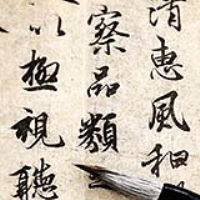 清惠風和
察品類
以極視聽